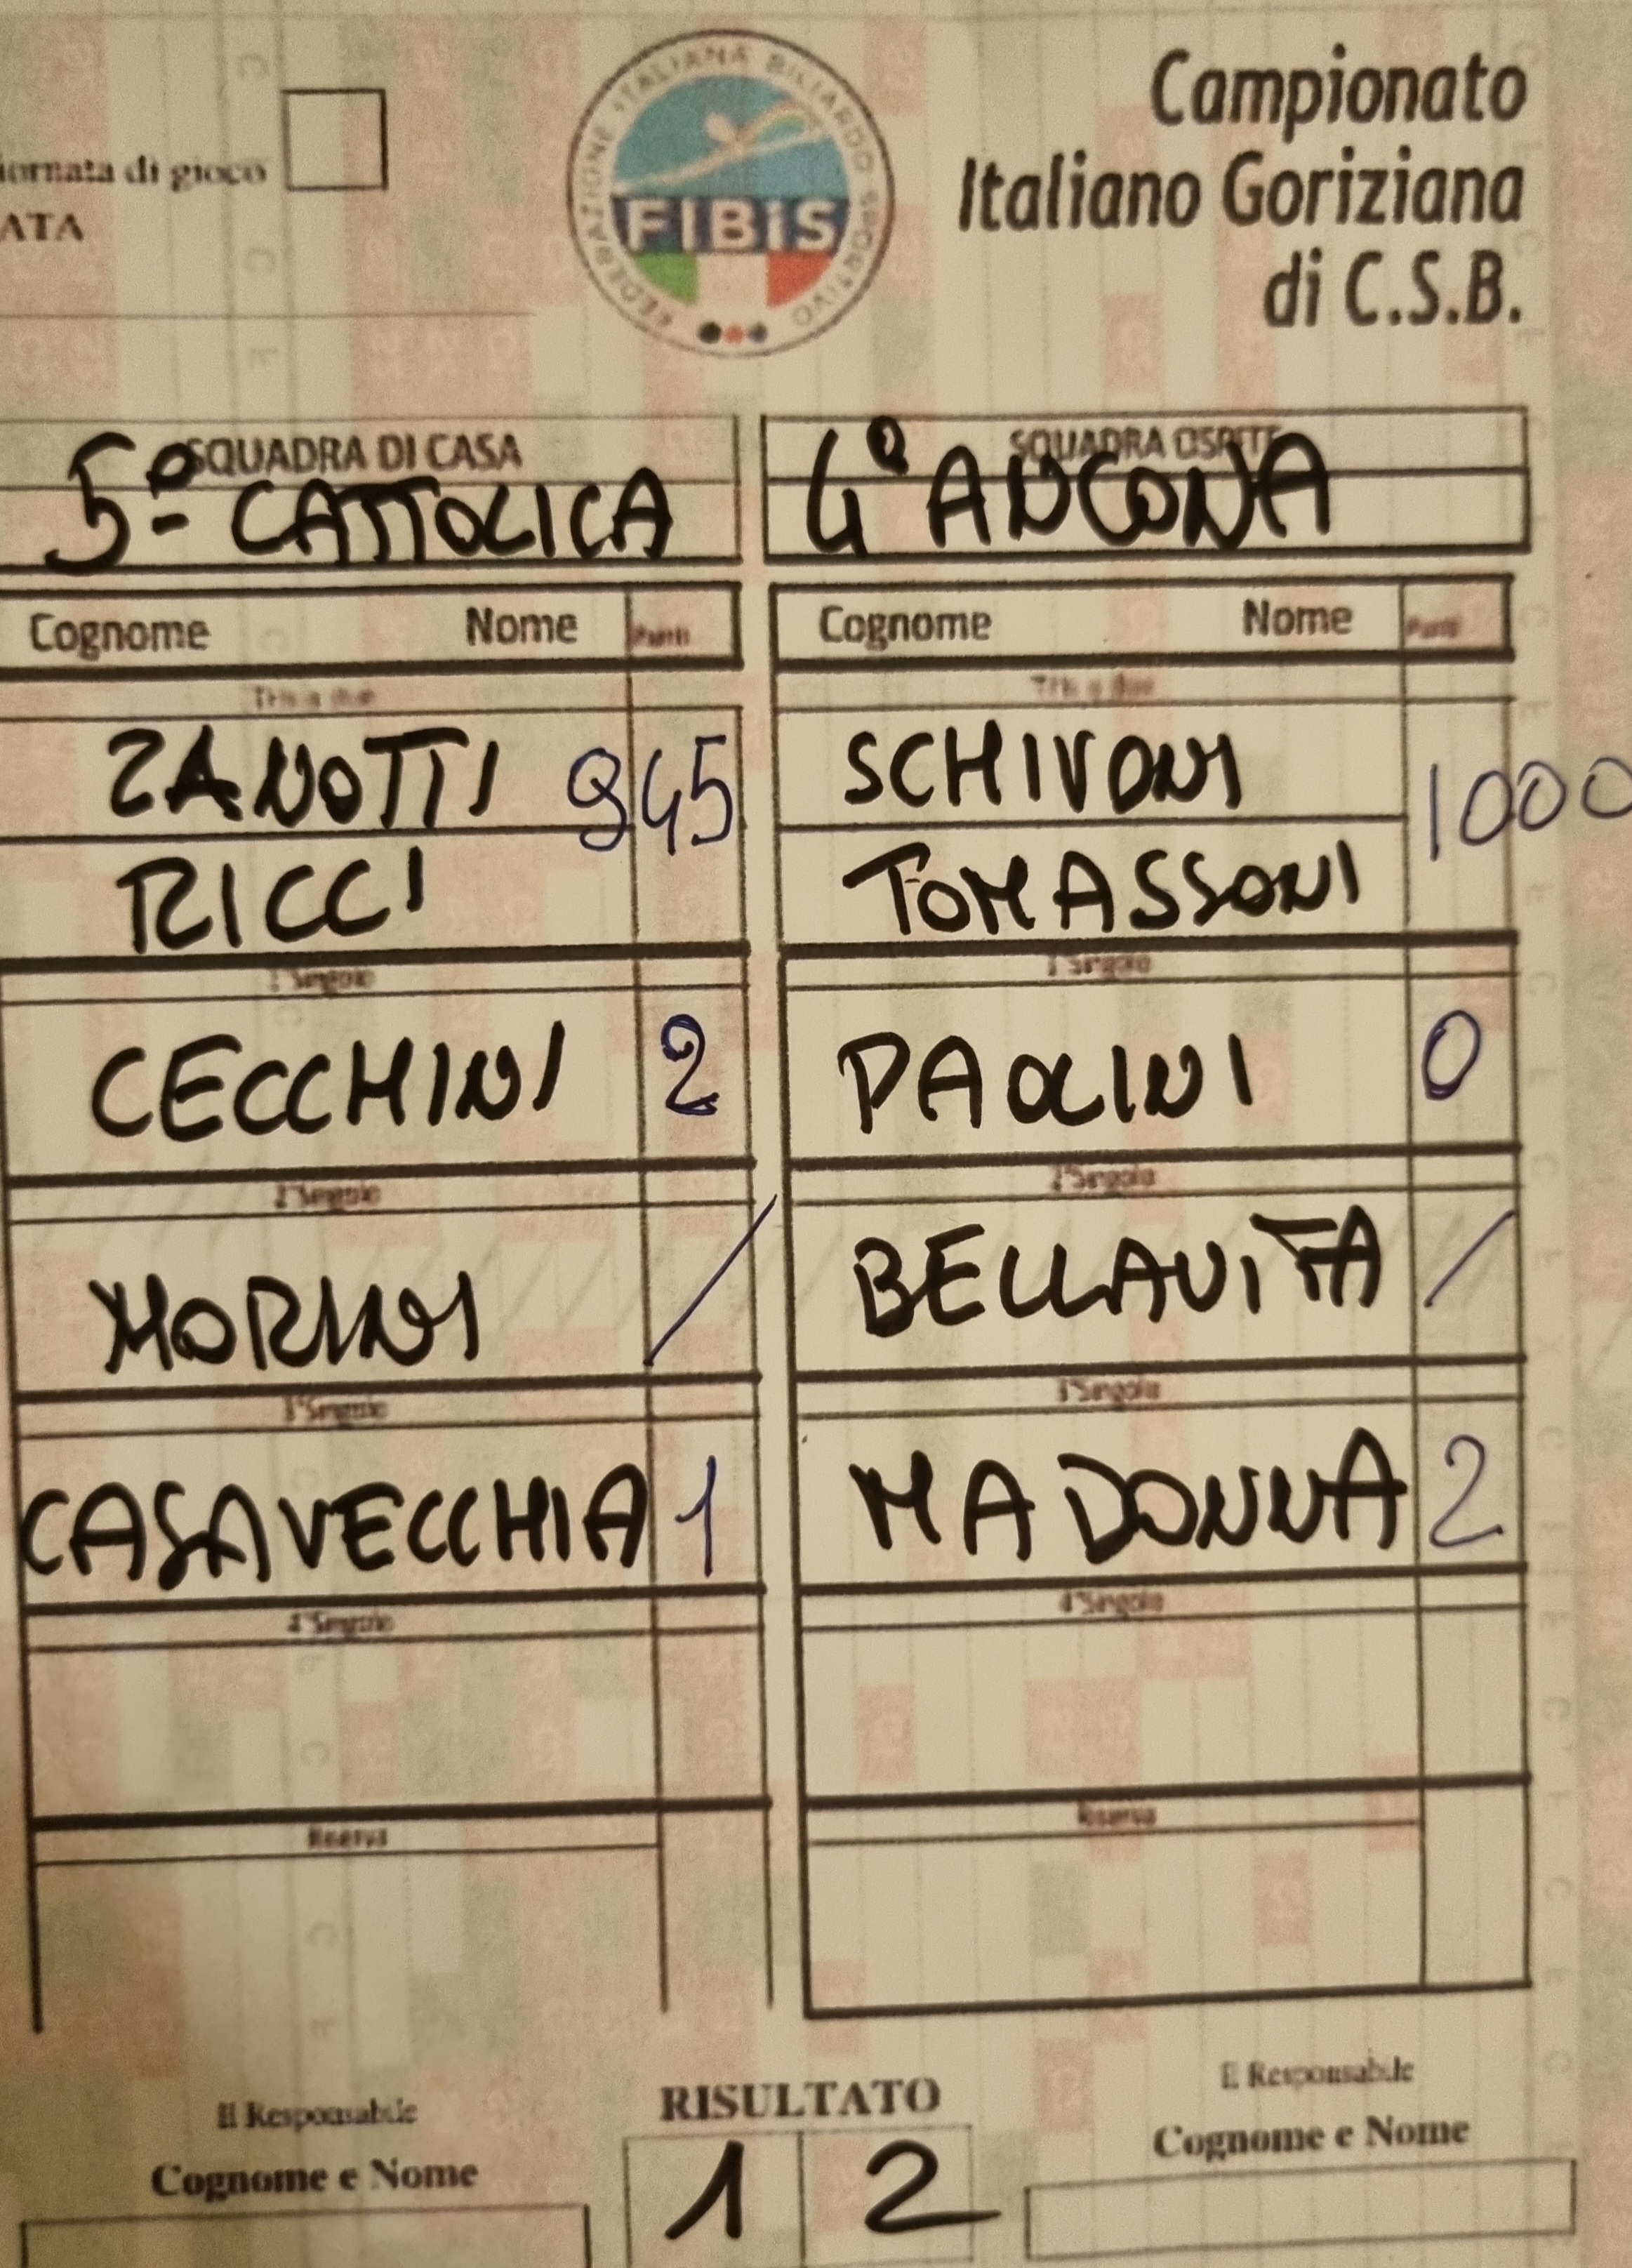 iornata di gioco
ATA
FEDERAZIONE ITALIANA BILIARDO SPORTIVO
FIBiS
Campionato
Italiano Goriziana
di C.S.B.
SQUADRA DI CASA
5° CATTOLICA
SQUADRA OSPITE
4° ANCONA
Cognome Nome Punti
Cognome Nome Punti
Tris a due
Tris a due
ZANOTTI 945
SCHIVONI 1000
RICCI
TOMASSONI
1°Singolo
1°Singolo
CECCHINI 2
PAOLINI 0
2°Singolo
2°Singolo
MORINI /
BELLAVITA /
3°Singolo
3°Singolo
CASAVECCHIA 1
MADONNA 2
4°Singolo
4°Singolo
Riserva
Riserva
Il Responsabile
RISULTATO
Il Responsabile
Cognome e Nome
1 2
Cognome e Nome